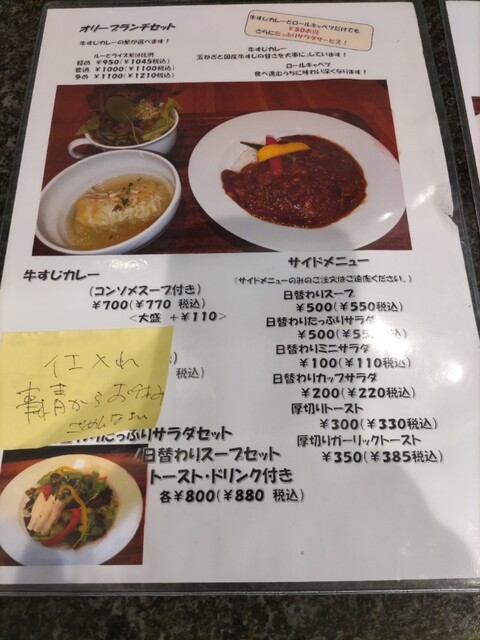 オリーブランチセット
牛すじカレーとロールキャベツだけでも
￥50お得
さらにたっぷりサラダサービス！
牛すじカレーの量が選べます！
ルーとライス
軽め ￥950(￥1045税込)
普通 ￥1000(￥1100税込)
多め ￥1100(￥1210税込)
牛すじカレー
玉ねぎと国産牛すじの甘さを大事にしています！
ロールキャベツ
食べ進むうちに味わい深くなります！
牛すじカレー
(コンソメスープ付き)
￥700(￥770 税込)
<大盛 +￥110>
税込)
仕入れ
事情からお休み
ごめんなさい
たっぷりサラダセット
/日替わりスープセット
トースト・ドリンク付き
各￥800(￥880 税込)
サイドメニュー
(サイドメニューのみのご注文はご遠慮ください。)
日替わりスープ
￥500(￥550税込)
日替わりたっぷりサラダ
￥500(￥55 税込)
日替わりミニサラダ
￥100(￥110税込)
日替わりカップサラダ
￥200(￥220税込)
厚切りトースト
￥300(￥330税込)
厚切りガーリックトースト
￥350(￥385税込)